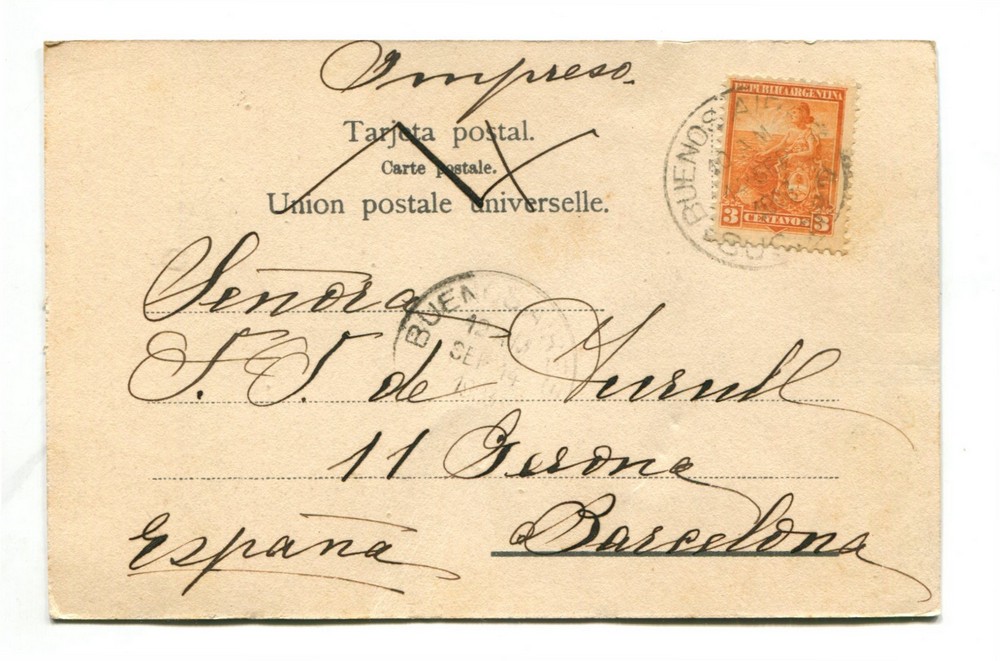 Impreso.
REPUBLICA ARGENTINA
3 CENTAVOS 3
BUENOS AIRES
Tarjeta postal.
Carte postale.
Union postale universelle.
Señora
BUENOS AIRES
SEP 14
J. J. de
11 Gerona
Barcelona
España